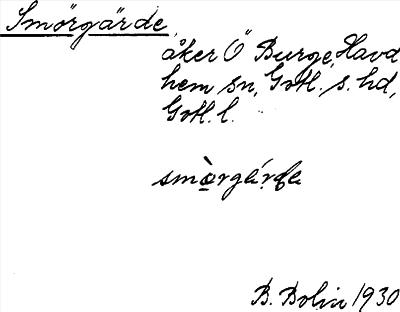 Smörgärde,
åker Ö Burge, Havd
hem sn, Gotl. s. hd,
Gotl. l.
B. Bolin 1930